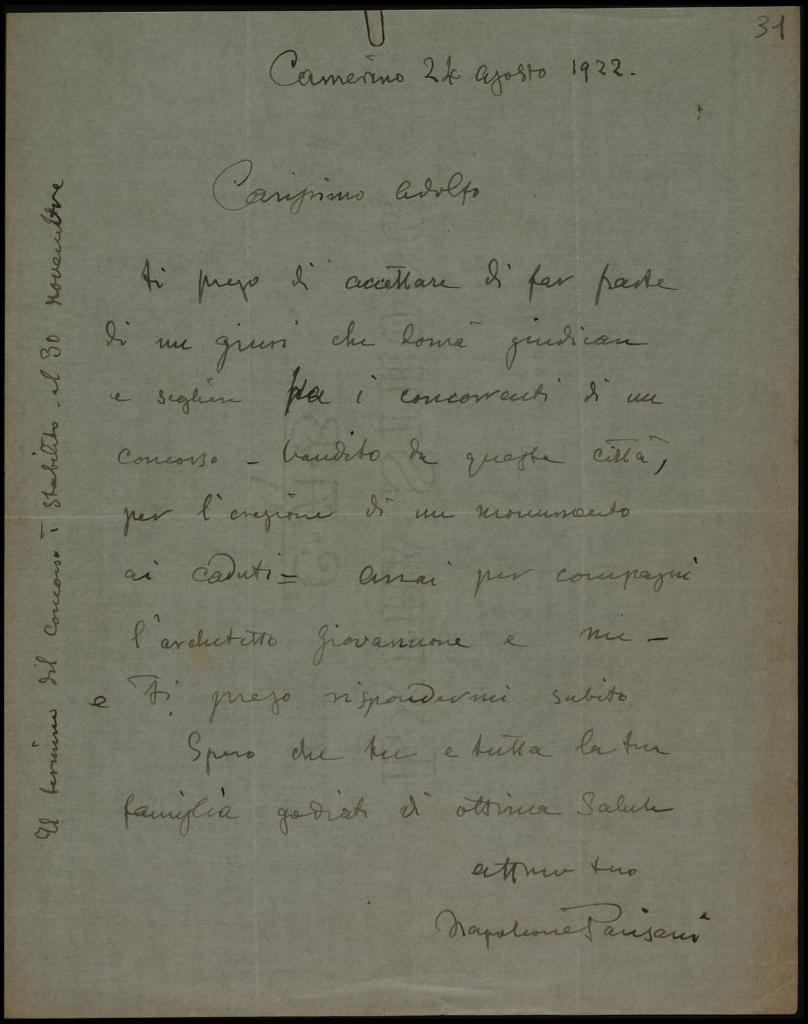 31
Camerino 24 Agosto 1922.
Carissimo Adolfo
ti prego di accettare di far parte
di un giurì che dovrà giudicare
e segliere fra i concorrenti di un
concorso - bandito da questa città,
per l'erezione di un monumento
ai caduti = avrai per compagni
l'architetto Giovannone e me -
e Ti prego rispondermi subito
Spero che tu e tutta la tua
famiglia godiate di ottima salute
aff.mo tuo
Napoleone Parisani
Il termine del Concorso è stabilito al 30 novembre